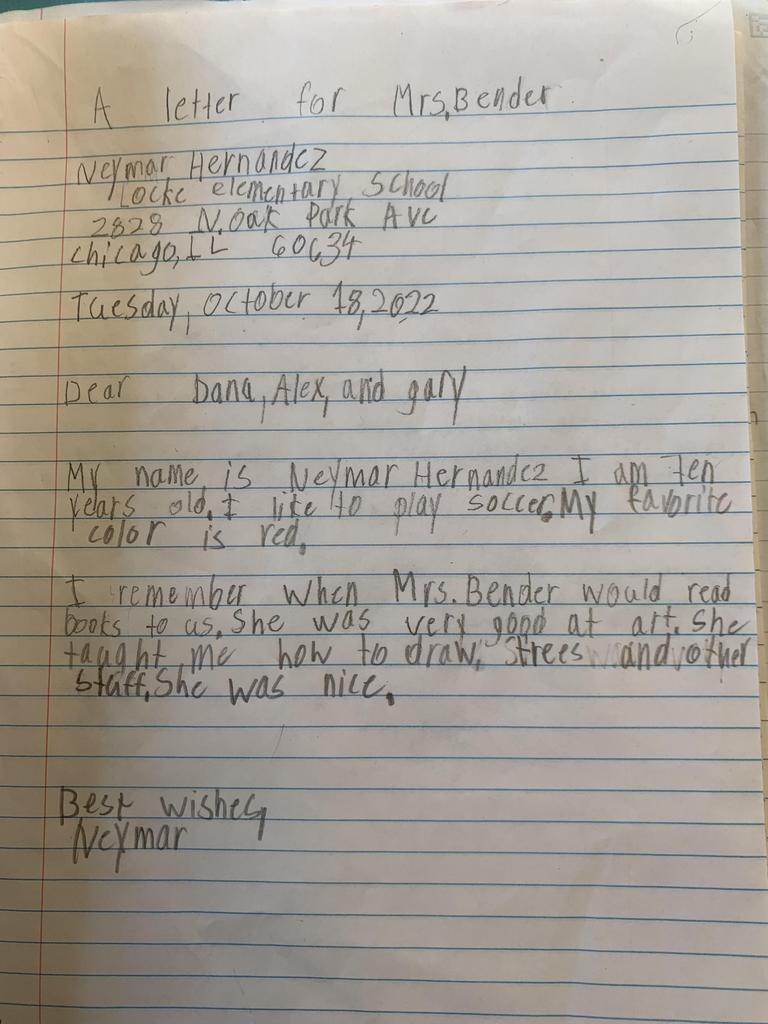 A letter for Mrs,Bender
Neymar Hernandez
Locke elementary School
2828 N.Oak Park Ave
chicago,IL 60634
Tuesday, October 18,2022
Dear Dana, Alex, and gary
My name, is Neymar Hernandez I am Ten
years old. I like to play soccer.My favorite
color is red.
I remember when Mrs.Bender would read
books to us. She was very good at art. She
taught me how to draw. Strees and other
staff.She was nice.
Best wishes,
Neymar